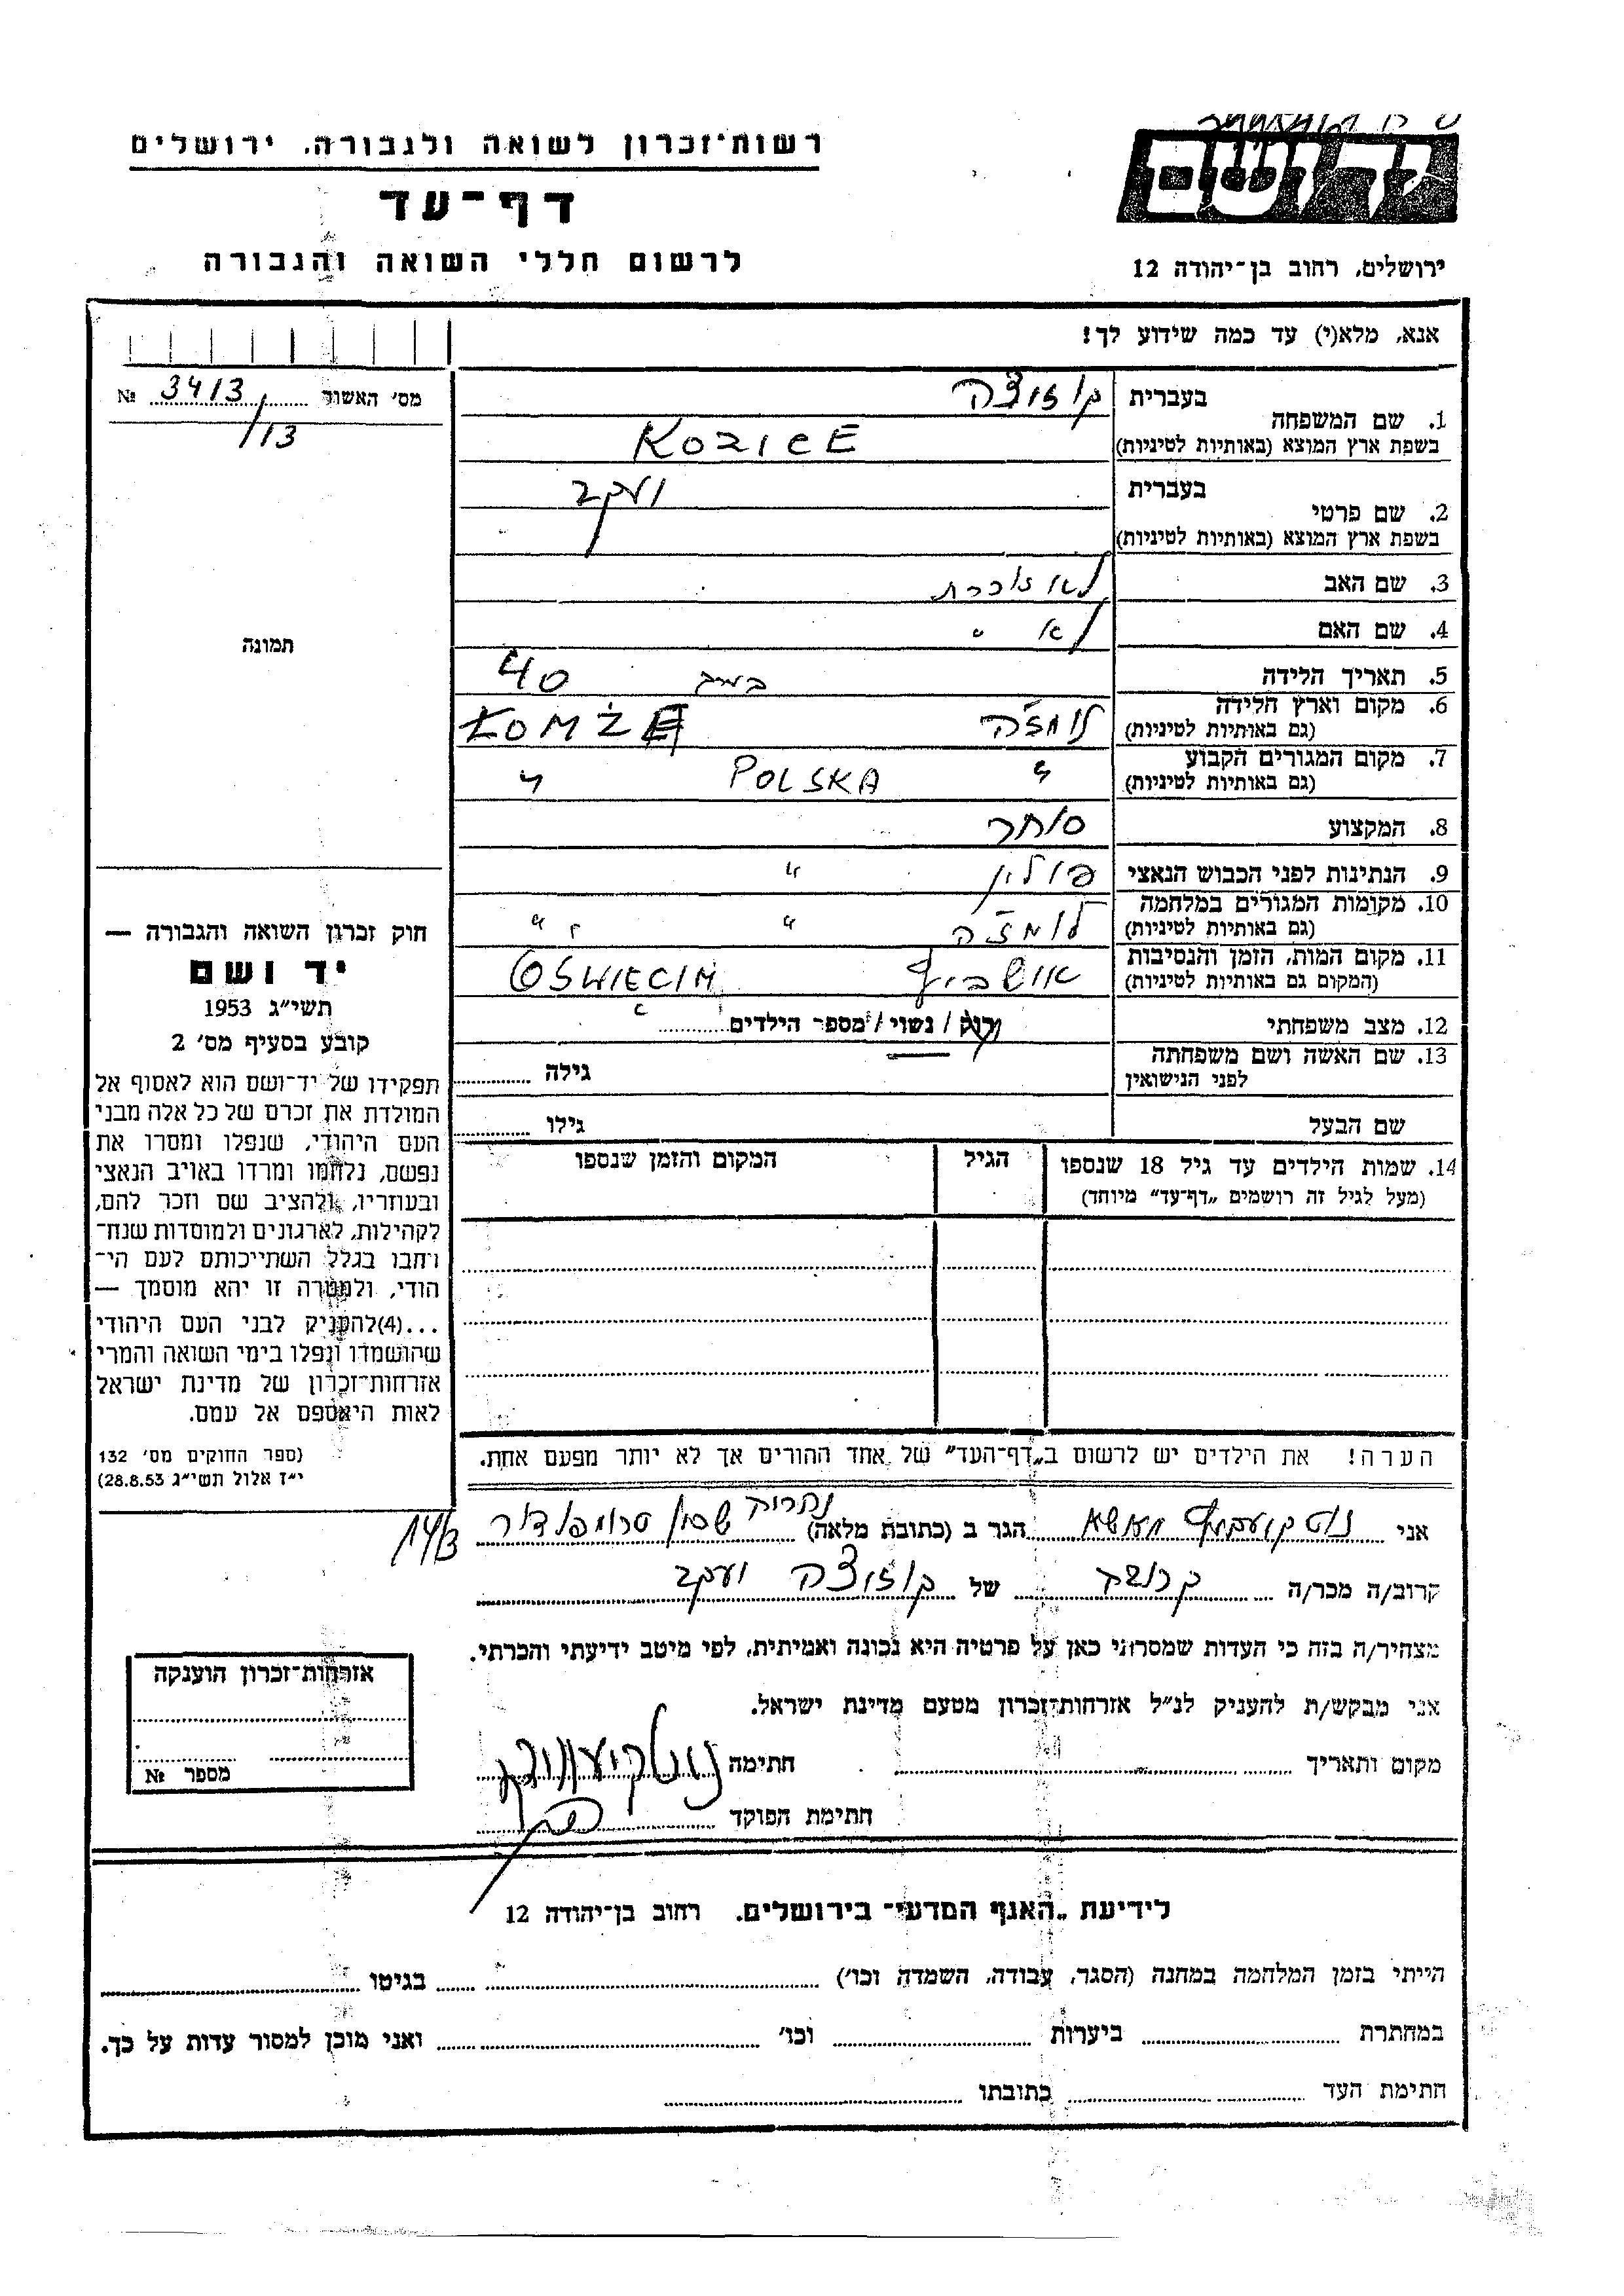 רשות־זכרון לשואה ולגבורה, ירושלים
דף־עד
לרשום חללי השואה והגבורה
יד ושם
ירושלים, רחוב בן־יהודה 12
אנא, מלא(י) עד כמה שידוע לך!
מס׳ האשור 3413 №
/13
1. שם המשפחה
בעברית קוזוצה
בשפת ארץ המוצא (באותיות לטיניות) KOZICE
2. שם פרטי
בעברית יעקב
בשפת ארץ המוצא (באותיות לטיניות)
3. שם האב לא זוכרת
4. שם האם לא "
תמונה
5. תאריך הלידה בערך 40
6. מקום וארץ הלידה לומזה ŁOMŻE
(גם באותיות לטיניות)
7. מקום המגורים הקבוע " POLSKA "
(גם באותיות לטיניות)
8. המקצוע סוחר
9. הנתינות לפני הכבוש הנאצי פולין "
10. מקומות המגורים במלחמה לומזה " "
(גם באותיות לטיניות)
11. מקום המות, הזמן והנסיבות אושביץ OŚWIECIM
(המקום גם באותיות לטיניות)
12. מצב משפחתי רוק / נשוי / מספר הילדים
13. שם האשה ושם משפחתה
לפני הנישואין גילה
שם הבעל גילו
14. שמות הילדים עד גיל 18 שנספו הגיל המקום והזמן שנספו
(מעל לגיל זה רושמים „דף־עד״ מיוחד)
חוק זכרון השואה והגבורה —
יד ושם
תשי״ג 1953
קובע בסעיף מס׳ 2
תפקידו של יד־ושם הוא לאסוף אל
המולדת את זכרם של כל אלה מבני
העם היהודי, שנפלו ומסרו את
נפשם, נלחמו ומרדו באויב הנאצי
ובעוזריו, ולהציב שם וזכר להם,
לקהילות, לארגונים ולמוסדות שנח־
רחבו בגלל השתייכותם לעם הי־
הודי, ולמטרה זו יהא מוסמך —
...(4)להעניק לבני העם היהודי
שהושמדו ונפלו בימי השואה והמרי
אזרחות־זכרון של מדינת ישראל
לאות היאספם אל עמם.
(ספר החוקים מס׳ 132
י״ז אלול תשי״ג 28.8.53)
הערה! את הילדים יש לרשום ב„דף־העד״ של אחד ההורים אך לא יותר מפעם אחת.
אני הגר ב (כתובת מלאה) שכון טרומפלדור
14/3
קרוב/ה מכר/ה קרובה של קוזוצה יעקב
מצהיר/ה בזה כי העדות שמסרתי כאן על פרטיה היא נכונה ואמיתית, לפי מיטב ידיעתי והכרתי.
אני מבקש/ת להעניק לנ״ל אזרחות־זכרון מטעם מדינת ישראל.
מקום ותאריך חתימה
חתימת הפוקד
אזרחות־זכרון הוענקה
מספר №
לידיעת „האגף המדעי״ בירושלים. רחוב בן־יהודה 12
הייתי בזמן המלחמה במחנה (הסגר, עבודה, השמדה וכו׳) בגיטו
במחתרת ביערות וכו׳ ואני מוכן למסור עדות על כך.
חתימת העד כתובתו